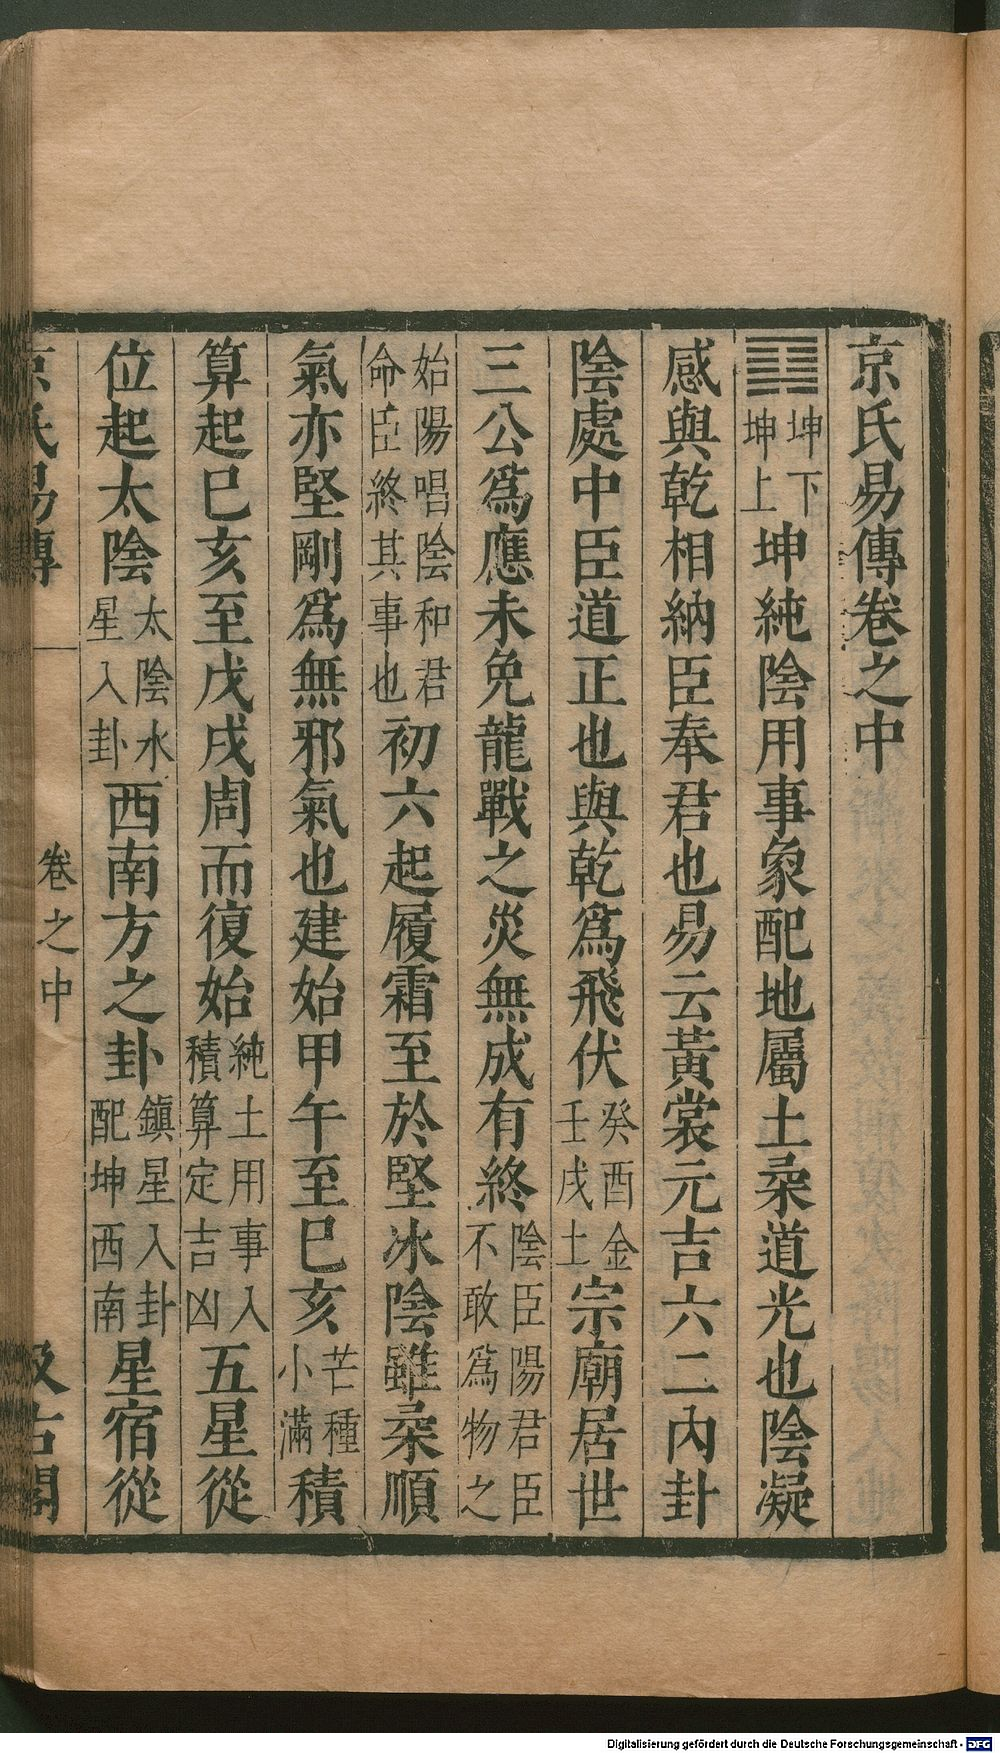 京氏易傳卷之中
䷁坤下坤上坤純陰用事象配地屬土柔道光也陰凝
感與乾相納臣奉君也易云黃裳元吉六二內卦
陰處中臣道正也與乾爲飛伏癸酉金壬戌土宗廟居世
三公爲應未免龍戰之災無成有終陰臣陽君臣不敢爲物之
始陽唱陰和君命臣終其事也初六起履霜至於堅冰陰雖柔順
氣亦堅剛爲無邪氣也建始甲午至巳亥芒種小滿積
算起巳亥至戊戌周而復始純土用事入積算定吉凶五星從
位起太陰太陰水星入卦西南方之卦鎮星入卦配坤西南星宿從
京氏易傳 卷之中 汲古閣
Digitalisierung gefördert durch die Deutsche Forschungsgemeinschaft - DFG